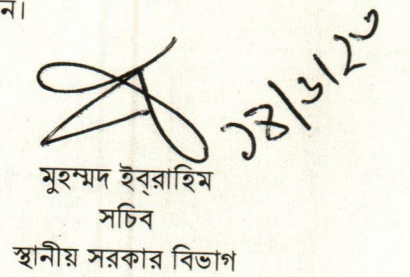 ন।
মুহম্মদ ইব্‌রাহিম
সচিব
স্থানীয় সরকার বিভাগ